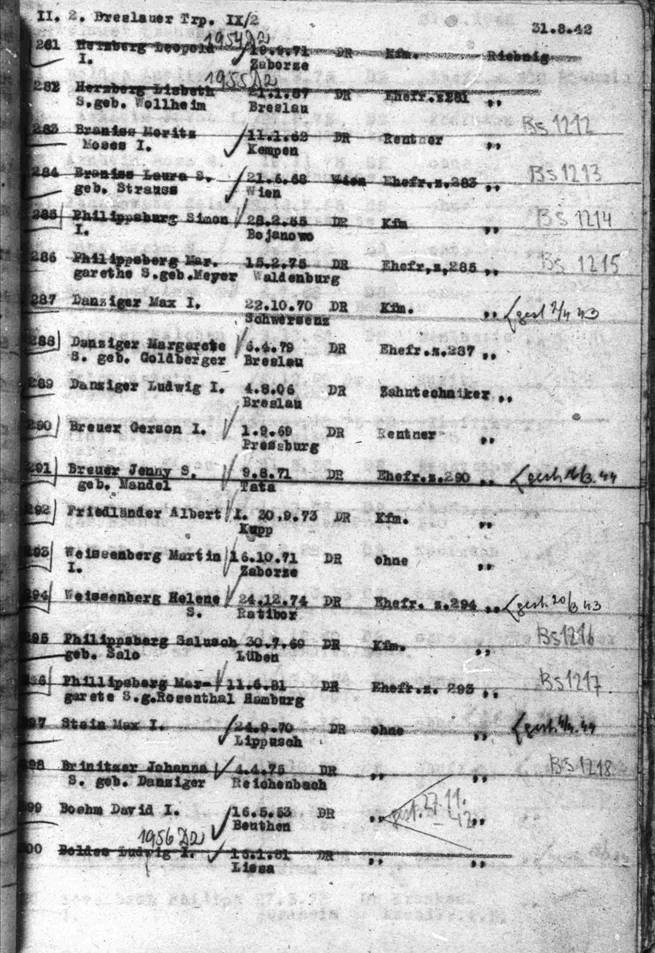 II. 2. Breslauer Trp. IX/2
31.8.42
1954 D2
281 Herzberg Leopold 19.9.71 DR Kfm. Riebnig
I. Zaborze
1955 D2
282 Herzberg Lisbeth 21.1.87 DR Ehefr.z281 ,,
S.geb. Wollheim Breslau
283 Braniss Moritz 11.1.62 DR Rentner ,, Bs1212
Moses I. Kempen
284 Braniss Laura S. 21.6.68 Wien Ehefr.z.283 ,, Bs1213
geb. Strauss Wien
285 Philippsberg Simon 28.2.65 DR Kfm ,, Bs 1214
I. Bojanowo
286 Philippsberg Mar. 15.2.75 DR Ehefr,z,285 ,, Bs 1215
garethe S.geb.Meyer Waldenburg
287 Danziger Max I. 22.10.70 DR Kfm. ,, gest 2/4 43
Schwersenz
288 Danziger Margarete 6.4.79 DR Ehefr.z.287 ,,
S. geb. Goldberger Breslau
289 Danziger Ludwig I. 4.8.06 DR Zahntechniker,,
Breslau
290 Breuer Gerson I. 1.9.69 DR Rentner ,,
Pressburg
291 Breuer Jenny S. 9.8.71 DR Ehefr.z.290 ,, gest
geb. Mandel Tata
292 Friedländer Albert I. 30.9.73 DR Kfm. ,,
Kupp
293 Weissenberg Martin 16.10.71 DR ohne ,,
I. Zaborze
294 Weissenberg Helene 24.12.74 DR Ehefr. z.294 ,, gest 20/3 43
S. Ratibor
295 Philippsberg Salusch 30.7.69 DR Kfm. ,, Bs1216
geb. Salo Lüben
296 Phillipsberg Mar- 11.6.81 DR Ehefr.z. 295 ,, Bs1217
garete S.g.Rosenthal Hamburg
297 Stein Max I. 24.9.70 DR ohne ,, gest
Lippusch
298 Brinitzer Johanna 4.4.75 DR ,, ,, Bs1218
S. geb. Danziger Reichenbach
299 Boehm David I. 16.5.53 DR ,, gest. 27.11.42 ,,
Beuthen
1956 D2
300 Boldes Ludwig I. 15.1.81 DR ,, ,,
Lissa